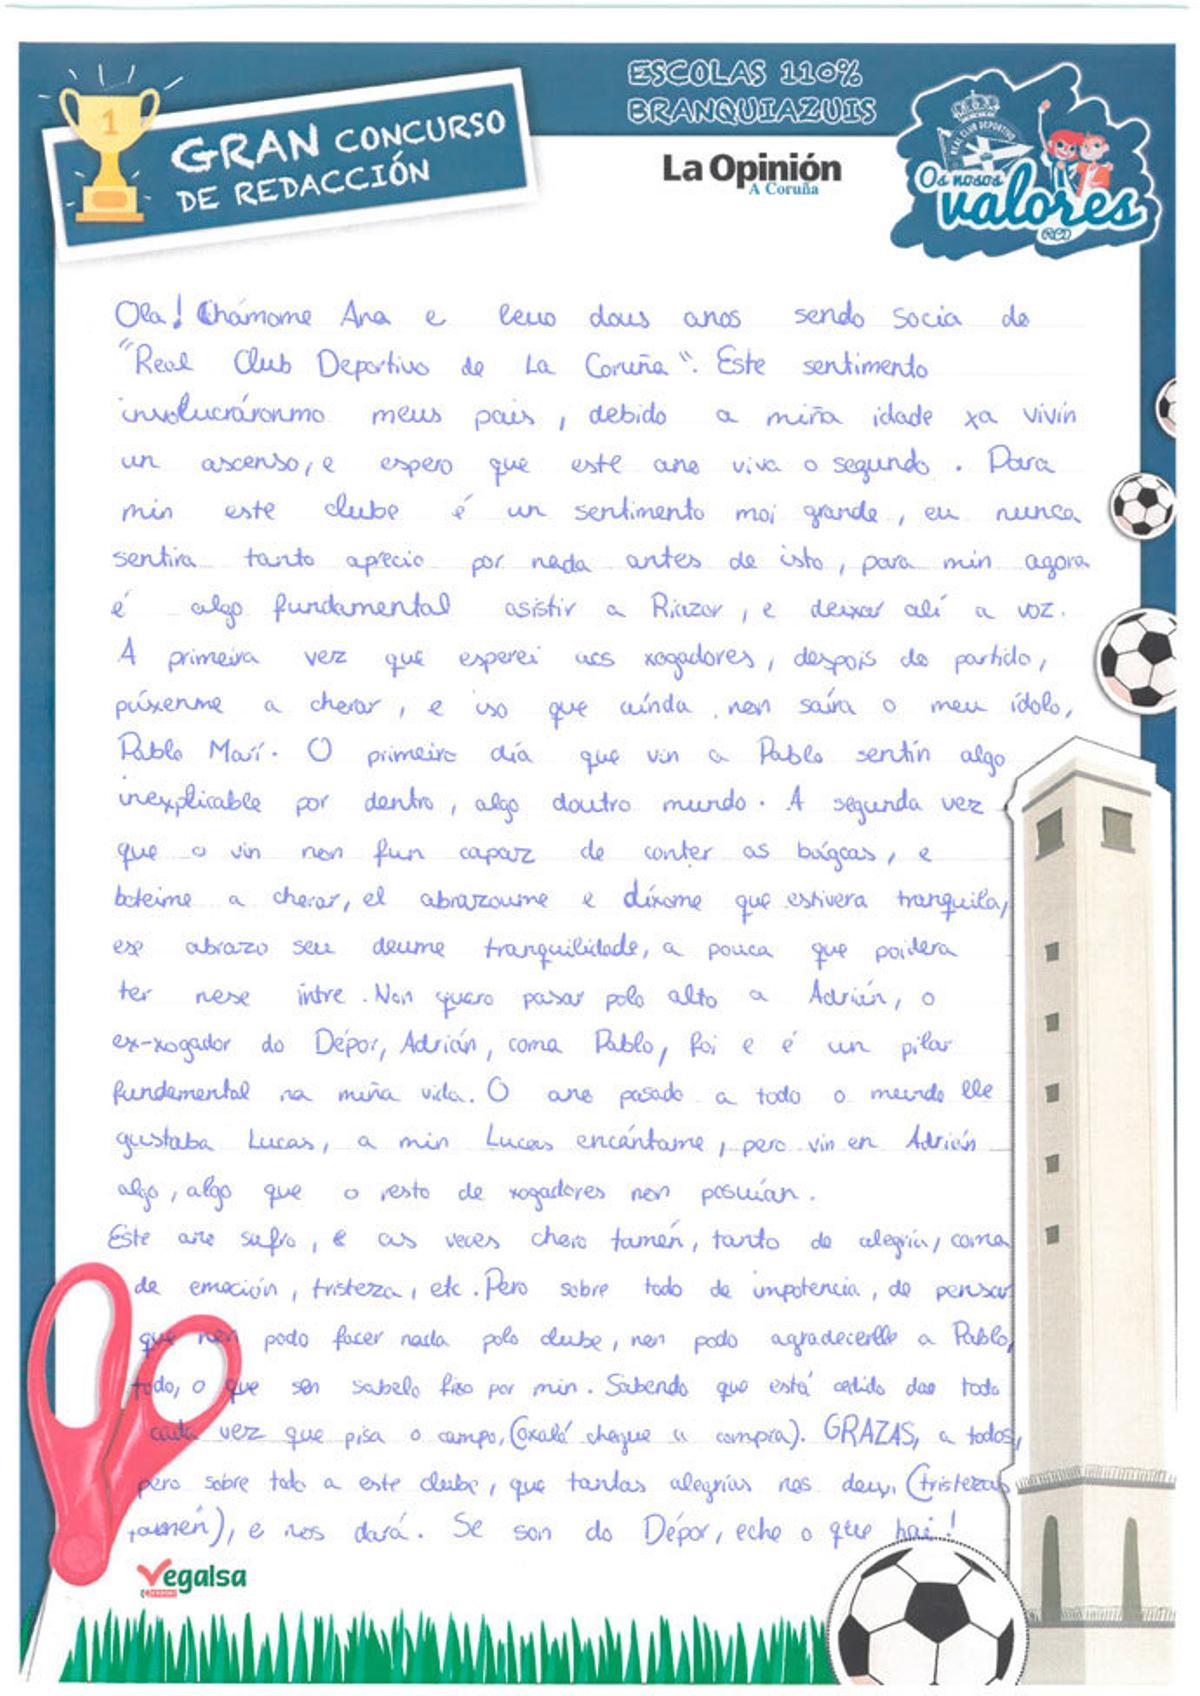 ESCOLAS 110%
BRANQUIAZUIS
1
GRAN CONCURSO
DE REDACCIÓN
La Opinión
A Coruña
REAL CLUB DEPORTIVO
Os nosos
valores
RCD
Ola! Chámome Ana e levo dous anos sendo socia do
"Real Club Deportivo de La Coruña". Este sentimento
involucráronmo meus pais, debido a miña idade xa vivín
un ascenso, e espero que este ano viva o segundo. Para
min este clube é un sentimento moi grande, eu nunca
sentira tanto aprecio por nada antes de isto, para min agora
é algo fundamental asistir a Riazor, e deixar alí a voz.
A primeira vez que esperei aos xogadores, despois do partido,
púxenme a chorar, e iso que aínda non saíra o meu ídolo,
Pablo Marí. O primeiro día que vin a Pablo sentín algo
inexplicable por dentro, algo doutro mundo. A segunda vez
que o vin non fun capaz de conter as bágoas, e
boteime a chorar, el abrazoume e díxome que estivera tranquila,
ese abrazo seu deume tranquilidade, a pouca que poidera
ter nese intre. Non quero pasar polo alto a Adrián, o
ex-xogador do Dépor, Adrián, coma Pablo, foi e é un pilar
fundamental na miña vida. O ano pasado a todo o mundo lle
gustaba Lucas, a min Lucas encántame, pero vin en Adrián
algo, algo que o resto de xogadores non posuían.
Este ano sufro, e as veces choro tamén, tanto de alegría, coma
de emoción, tristeza, etc. Pero sobre todo de impotencia, de pensar
que non podo facer nada polo clube, non podo agradecerlle a Pablo,
todo, o que sen sabelo fixo por min. Sabendo que está cedido dao todo
cada vez que pisa o campo, (oxalá chegue a compra). GRAZAS, a todos,
pero sobre todo a este clube, que tantas alegrías nos deu, (tristezas
tamén), e nos dará. Se son do Dépor, eche o que hai!
Vegalsa